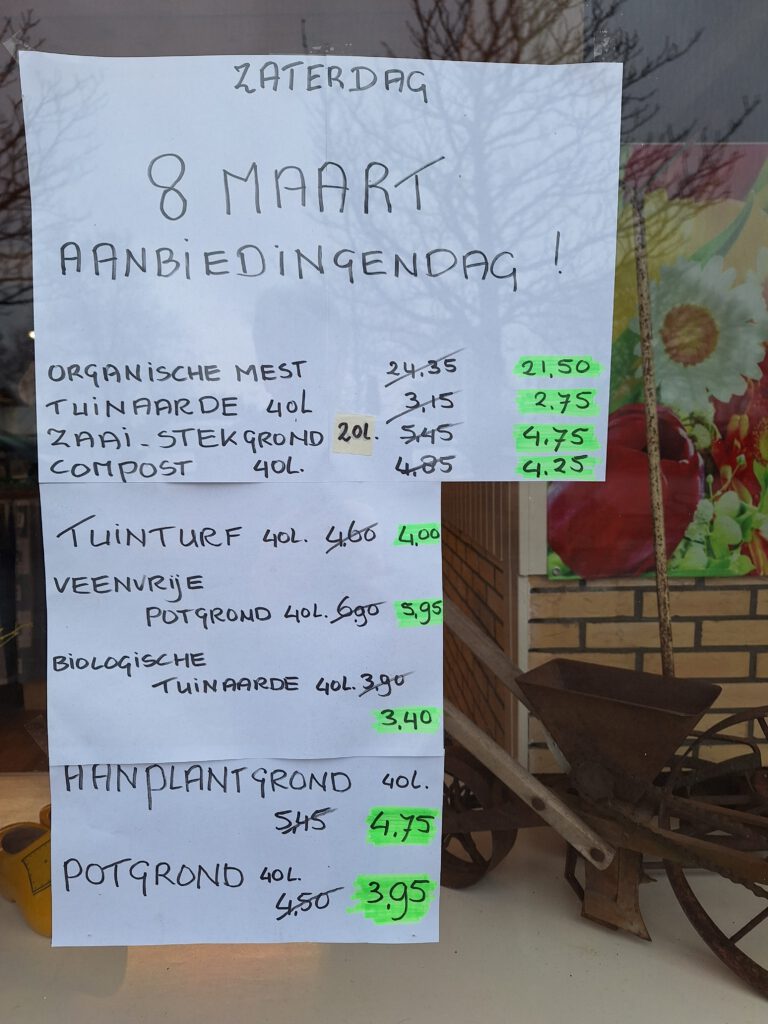 ZATERDAG
8 MAART
AANBIEDINGENDAG !
ORGANISCHE MEST 24,35 21,50
TUINAARDE 40L 3,15 2.75
ZAAI-STEKGROND 20L. 5,45 4.75
COMPOST 40L. 4.85 4.25
TUINTURF 40L. 4.60 4,00
VEENVRIJE
POTGROND 40L. 6.90 5,95
BIOLOGISCHE
TUINAARDE 40L. 3.90
3,40
AANPLANTGROND 40L.
5,45 4.75
POTGROND 40L.
4.50 3.95